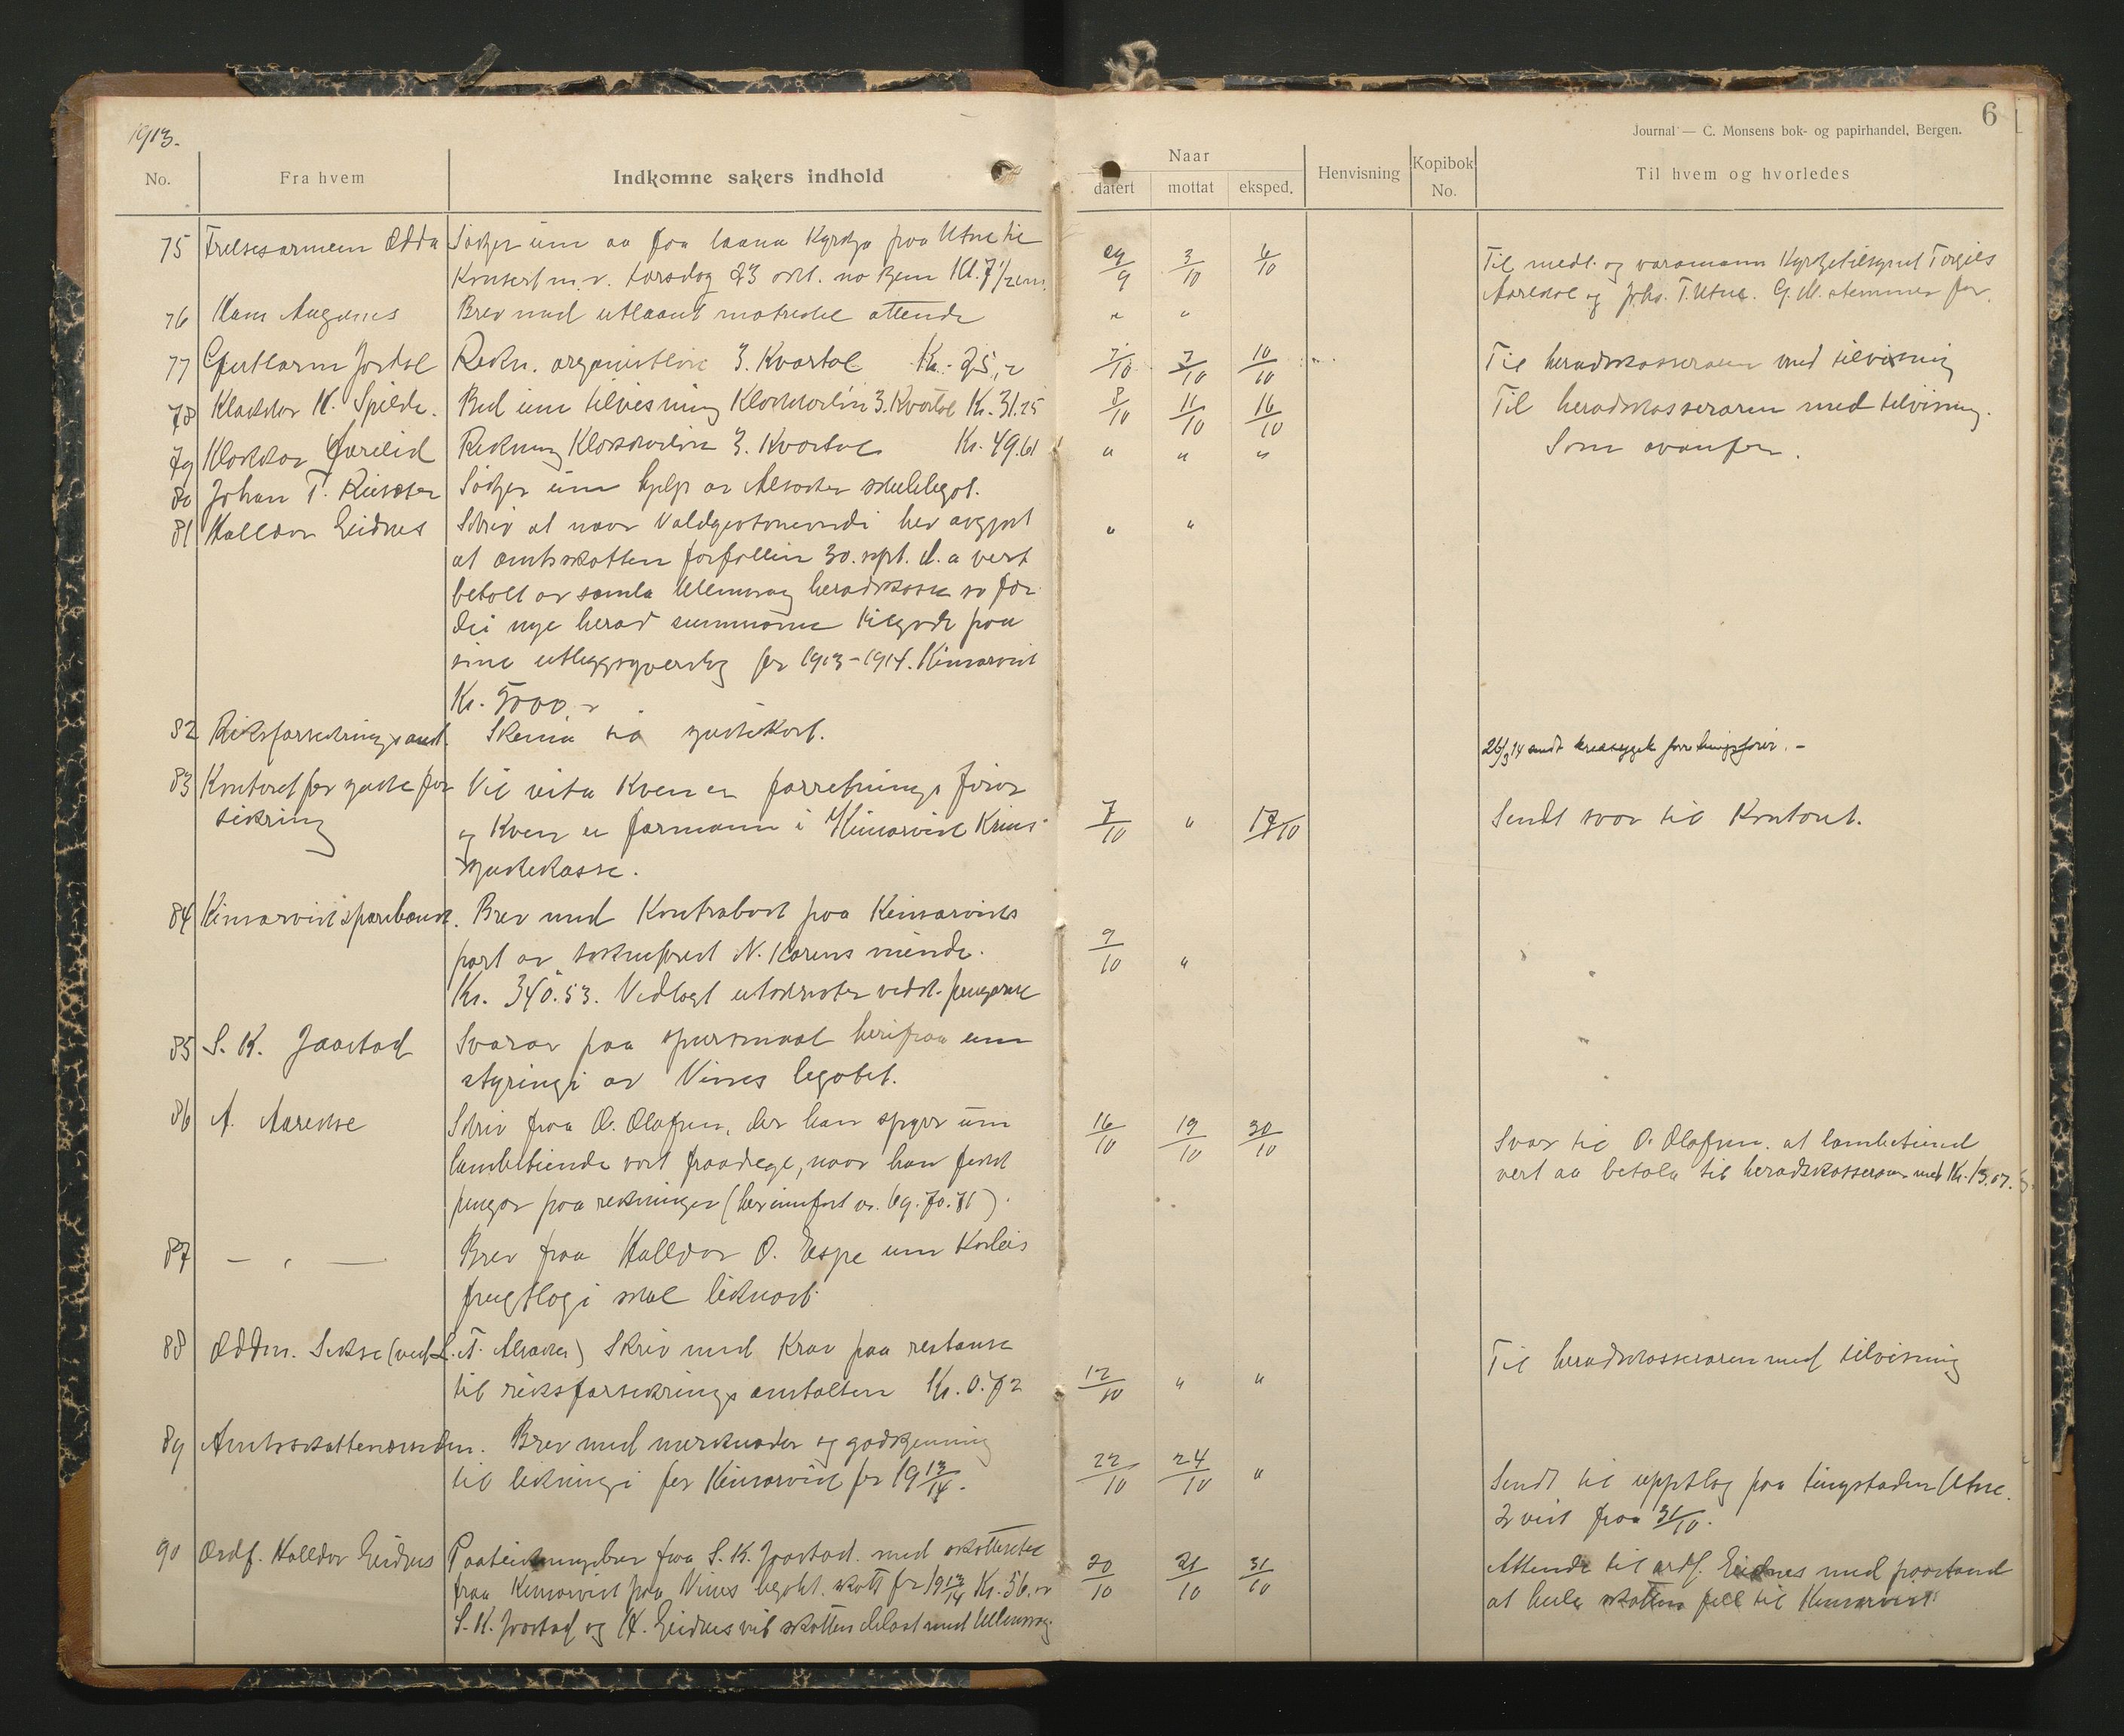 1913.
6
Journal — C. Monsens bok- og papirhandel, Bergen.
No. Fra hvem Indkomne sakers indhold Naar datert mottat eksped. Henvisning Kopibok No. Til hvem og hvorledes
75 Frelsesarmeen Odda Søkjer um aa faa laana Kyrkja paa Utne til 29/9 3/10 6/10 Til medl. og varamann Kyrkjetilsynet Torgils
Konsert m. v. torsdag 23 okt. no kjem Kl. 7 1/2 em. Aarekol og Johs. T. Utne. G. M. stemmer for.
76 Hans Auganes Brev med utlaant matrikel attende " "
77 Jordal Rekn. organistløn 3. Kvartal Kr. 25,- 7/10 7/10 10/10 Til heradskasseraren med tilvisning
78 Klokkar H. Spilde. Bed um tilvisning Klokkarløn 3. Kvartal Kr. 31.25 8/10 11/10 16/10 Til heradskasseraren med tilvisning.
79 Klokkar Rekning Klokkarløn 3. Kvartal Kr. 49.61 " " " Som ovanfor.
80 Johan T. Søkjer um hjelp av Alsaker skulelegat.
81 Halldor Eidnes Skriv at naar Valdgiftsnemndi hev avgjort " "
at amtsskatten forfallin 30. sept. d. a vert
betalt av samla Ullensvang heradskasse so fær
dei nye herad summane tilgode paa
sine utleggsyverslag for 1913-1914. Kinsarvik
Kr. 5000,-
82 Riksforsikringsanst. Skema til sjukekort. 26/3 14 sendt kredssygek. forretningsfører. -
83 Kontoret for sjukefor Vil vita kven er forretningsførar
sikring og kven er formann i Kinsarvik Krins 7/10 " 17/10 Sendt svar til Kontoret.
sjukekasse.
84 Kinsarvik sparebank. Brev med Kontrabok paa Kinsarviks
part av sokneprest N. Karens minde. 9/10 "
Kr. 340.53. Vedlagt utskrifter vedk. pengarne
85 S. K. Jaastad Svarar paa spursmaal herifraa um
styringi av Vines legatet.
86 A. Aarekol Skriv fraa O. Olafsen, der han spyrr um 16/10 19/10 30/10 Svar til O. Olafsen. at lambetiend
lambetiende vart fraadrege, naar han fekk vert aa betala til heradskasseraren med Kr. 13.07.
pengar paa rekningar (her innført nr. 69. 70. 71).
87 — " — Brev fraa Halldor O. Espe um Korleis
frugtlogi skal liknast.
88 Oddm. Sekse (ved L. T. Alsaker) Skriv med Krav paa restanse Til heradskasseraren med tilvisning
til riksforsikringsanstalten Kr. 0.72 12/10 " "
89 Amtsskattenemnden. Brev med merknader og godkjenning 22/10 24/10 "
til likningi for Kinsarvik for 1913/14. Sendt til uppslag paa tingstaden Utne.
2 vik fraa 31/10.
90 Ordf. Halldor Eidnes Paateikningsbrev fraa S. K. Jaastad. med skattesetel 20/10 21/10 31/10 Attende til ordf. Eidnes med paastand
fraa Kinsarvik paa Vines legat. skatt for 1913/14 Kr. 56. at heile skatten fell til Kinsarvik
S. K. Jaastad og H. Eidnes vil skatten delast med Ullensvang.